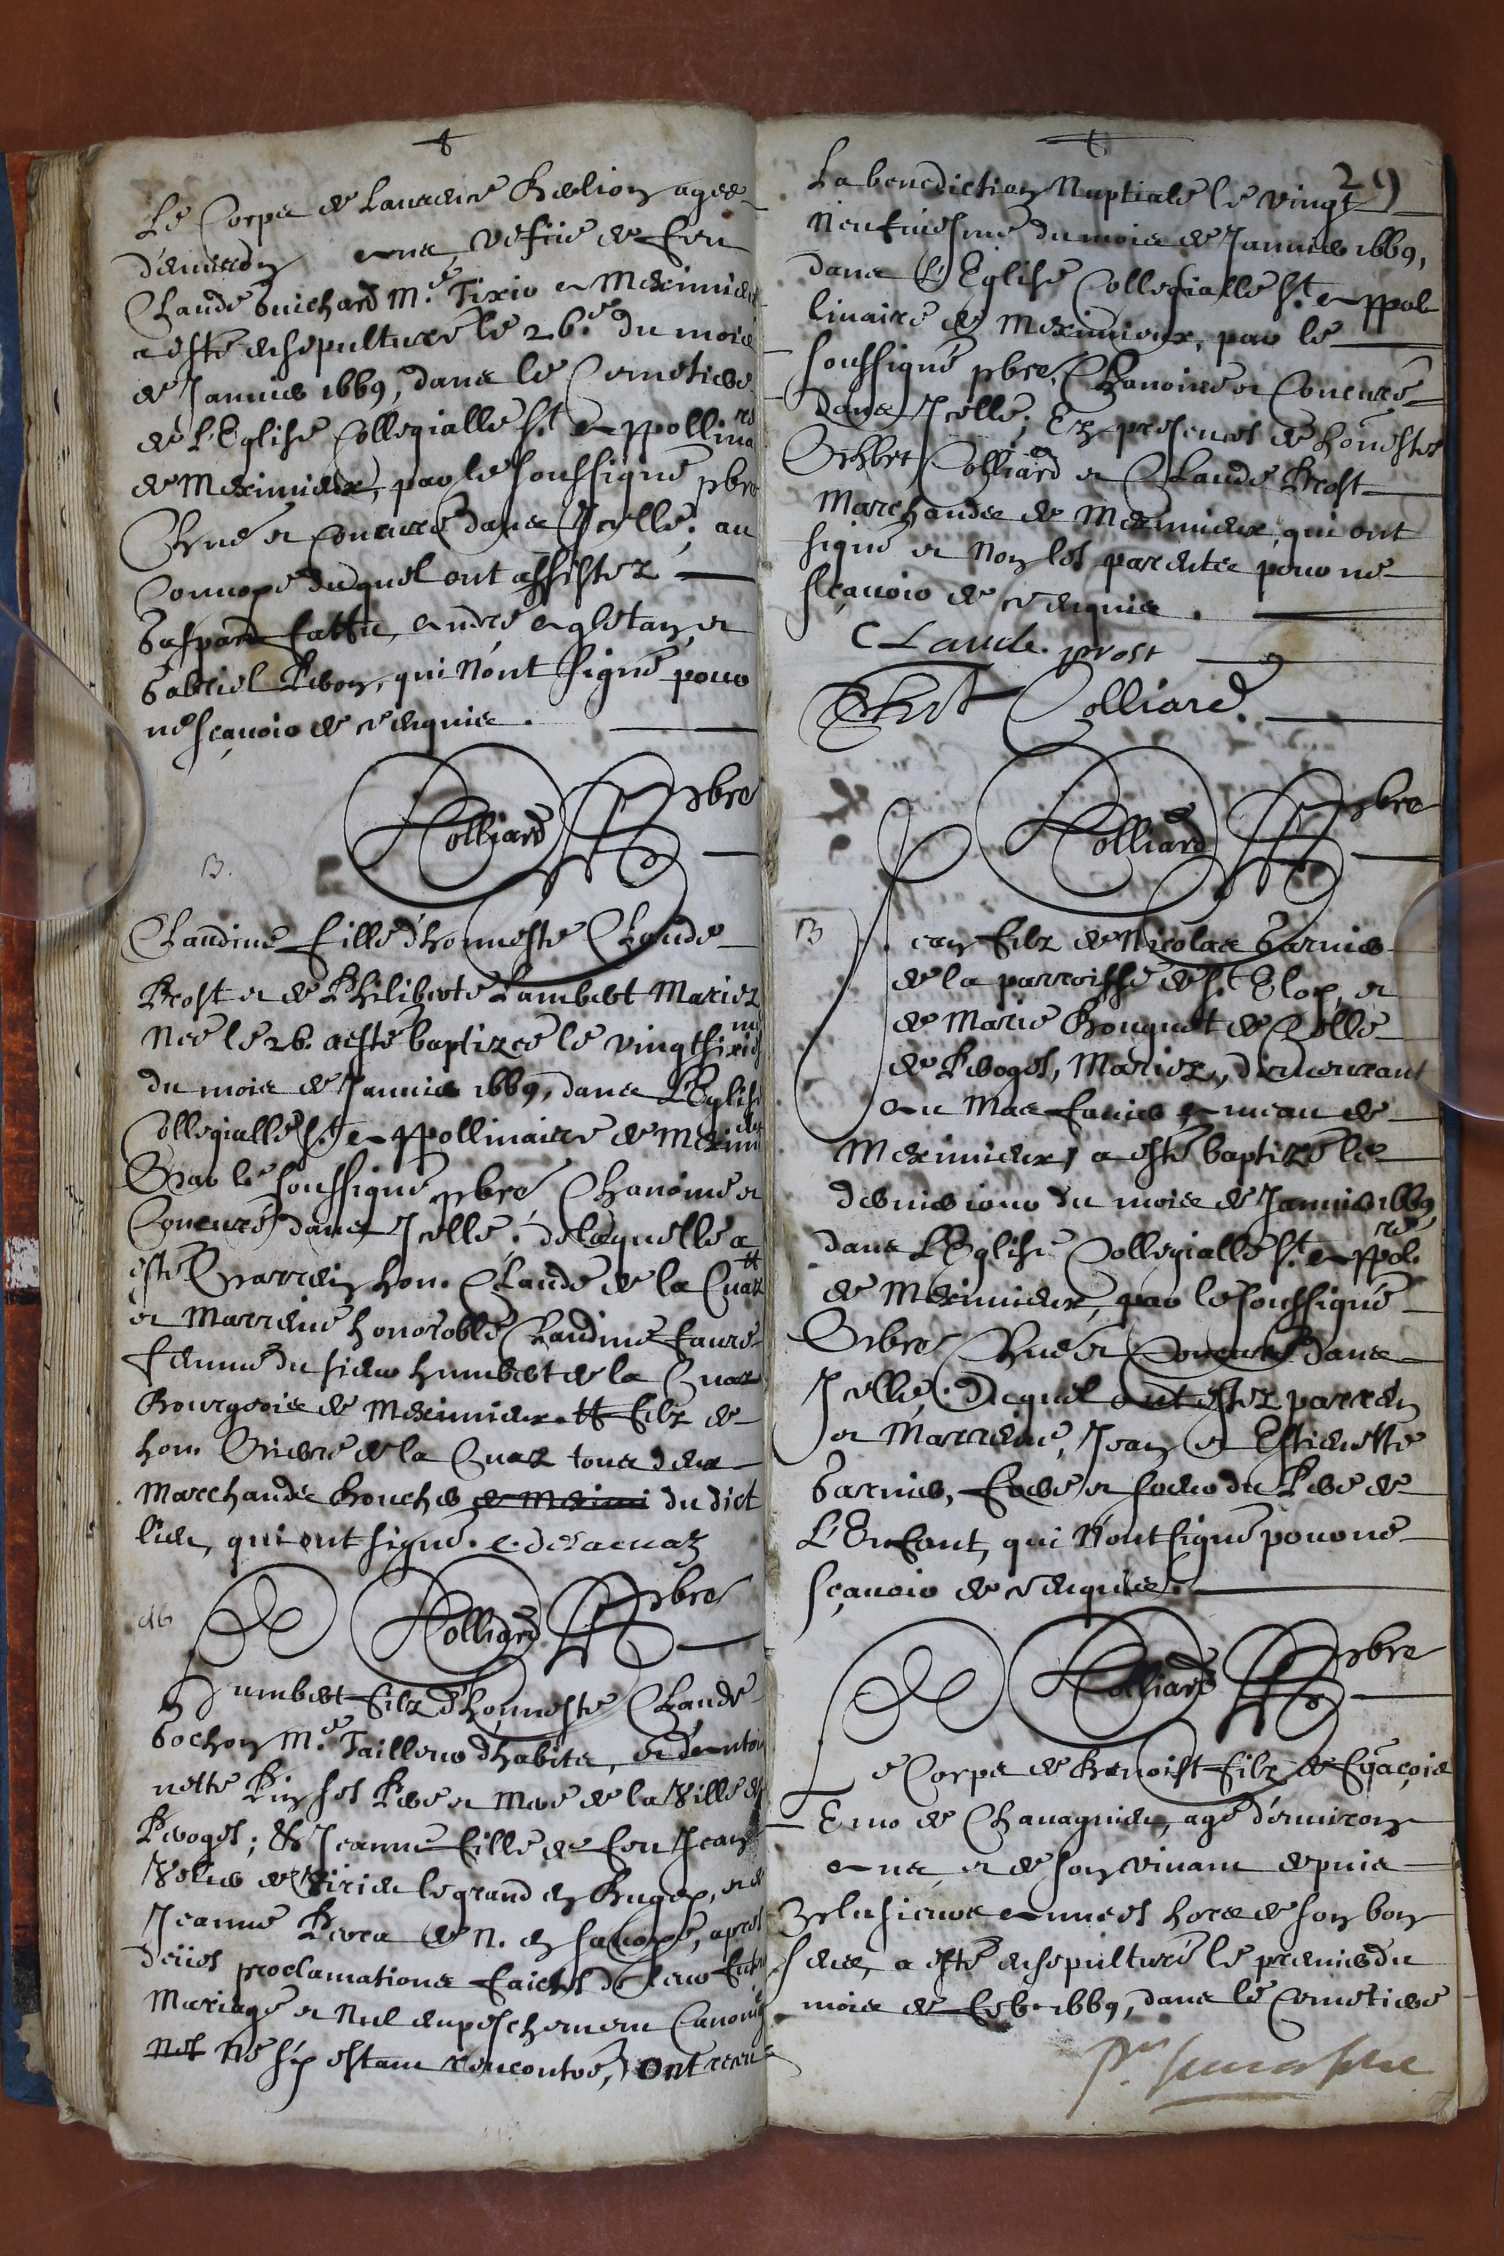 Le Corps de Laurence Bertion agee
d'enuiron ans, vefue de feu
Claude Guichard M.e Tixio a Meximieux
a esté ensepulturé le 26.e du mois
de Januier 1669, dans le Cemetiere
de L'Eglise Collegialle S.t Appollinaire
de Meximieux, par le soussigné pbre
Chne et Concuré dans Icelle; au
Conuoye duquel ont assistez
Gaspard fattu, André Agletan, et
Gabriel Peron, qui n'ont signé pour
ne sçauoir de ce enquis.
Colliard pbre
B.
Claudine fille d'honneste Claude
Prost et de Philiberte Lambert Mariez
Née le 26. a esté baptizée le vingtsixiesme
du mois de Januier 1669, dans L'Eglise
Collegialle S.t Appollinaire de Meximieux
Par le soussigné pbre Chanoine et
Concuré dans Icelle; de laquelle a
esté Parrein hon. Claude de la Cuaz #
et Marreine honorable Claudine faure
femme du sieur humbert de la Cuaz
Bourgeois de Meximieux # filz de
hon. Pierre de la Cuaz tous deux
Marchands Bouchers de Meximi du dict
lieu, qui ont signé. c. delacuaz
Colliard pbre
Humbert filz d'honneste Claude
Gochon M.e Tailleur d'habits, et d'Antoi
nette Pin ses Pere et Mere de la Ville de
Peroges; Et Jeanne fille de feu Jean
Velus de Virieu le grand en Bugey, et de
Jeanne Berra de N. en Sauoye, apres
deües proclamations faictes de leur futur
Mariage et Nul empeschement Canonig
nes ne s'y estant rencontré, ont receu
29
La benediction Nuptiale le vingt
Neufuiesme du mois de Januier 1669,
dans L'Eglise Collegialle S.t Appol
linaire de Meximieux, par le
soussigné pbre, Chanoine et Concuré
dans Icelle; En presences de honestes
Philbert Colliard et Claude Prost
Marchands de Meximieux, qui ont
signé et Non les parents pour ne
sçauoir de ce enquis.
Claude prost
Phbt Colliard
Colliard pbre
B
Jean filz de Nicolas Garnier
de la parroisse de S.t Eloy, et
de Marie Bouquet de Celle
de Peroges, Mariez, demeurant
au Mas fanier Ameau de
Meximieux, a esté baptizé le
dernier iour du mois de Januier 1669
dans L'Eglise Collegialle S.t Appol.re
de Meximieux, par le soussigné
Pbre Chne et Concuré dans
Icelle; Duquel ont estez parrein
et Marreine, Jean et Estiennette
Garnier, frere et soeur du Pere de
L'Enfant, qui n'ont signé pour ne
sçauoir de ce enquis.
Colliard pbre
Le Corps de Benoist filz de françois
Emo de Chauagnieu, agé d'enuiron
ans, et de son viuant depuis
Plusieurs Années hors de son bon
sens, a esté ensepulturé le premier du
mois de feb. 1669, dans le Cemetiere